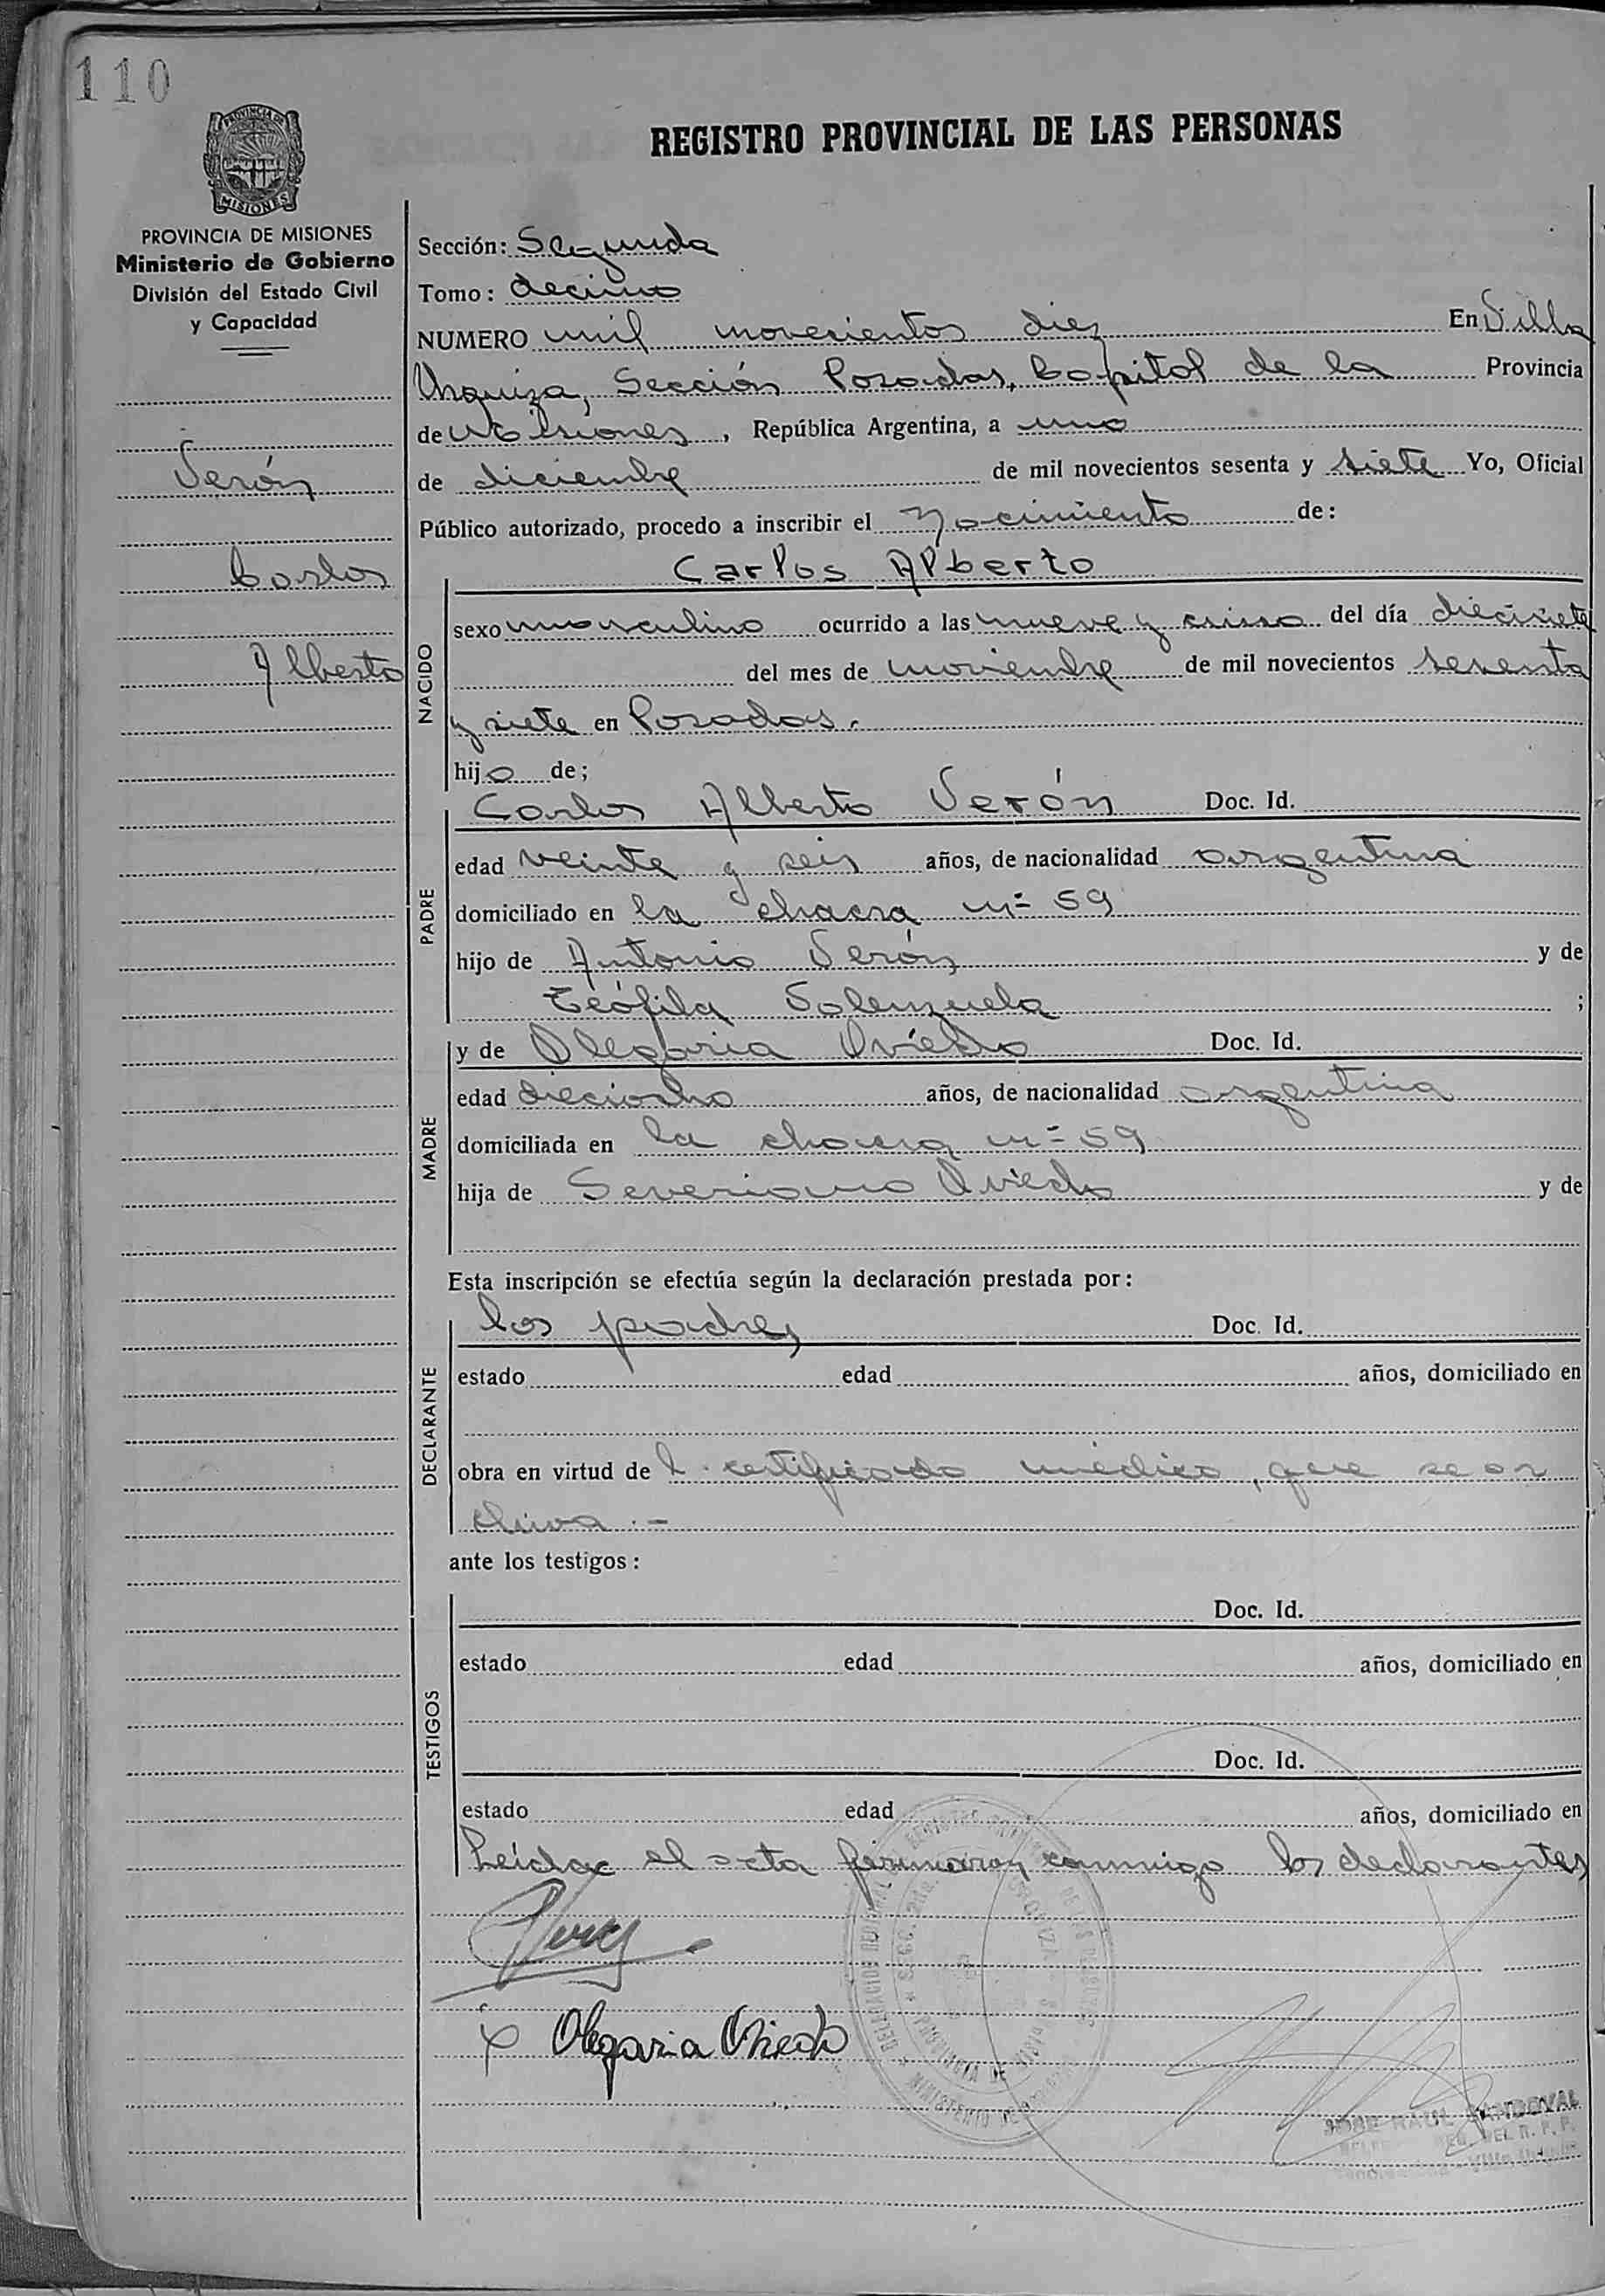 110
REGISTRO PROVINCIAL DE LAS PERSONAS
PROVINCIA DE MISIONES
Ministerio de Gobierno
División del Estado Civil
y Capacidad
Verón
Carlos
Alberto
Sección: Segunda
Tomo: decimo
NUMERO mil novecientos diez En Villa
Urquiza, Sección Posadas, Capital de la Provincia
de Misiones, República Argentina, a uno
de diciembre de mil novecientos sesenta y siete Yo, Oficial
Público autorizado, procedo a inscribir el Nacimiento de:
Carlos Alberto
NACIDO
sexo masculino ocurrido a las nueve y cinco del día diecisiete
del mes de noviembre de mil novecientos sesenta
y siete en Posadas.
hijo de;
PADRE
Carlos Alberto Verón Doc. Id.
edad veinte y seis años, de nacionalidad argentina
domiciliado en la chacra nº 59
hijo de Antonio Verón y de
Teófila Solenzuela ;
MADRE
y de Olegaria Oviedo Doc. Id.
edad dieciocho años, de nacionalidad argentina
domiciliada en la chacra nº 59
hija de Severiano Oviedo y de
Esta inscripción se efectúa según la declaración prestada por:
DECLARANTE
los padres Doc. Id.
estado edad años, domiciliado en
obra en virtud de l certificado médico, que se ar
chiva.-
ante los testigos:
TESTIGOS
Doc. Id.
estado edad años, domiciliado en
Doc. Id.
estado edad años, domiciliado en
Leída el acta firmaron conmigo los declarantes
x Olegaria Oviedo
RAUL SANDOVAL